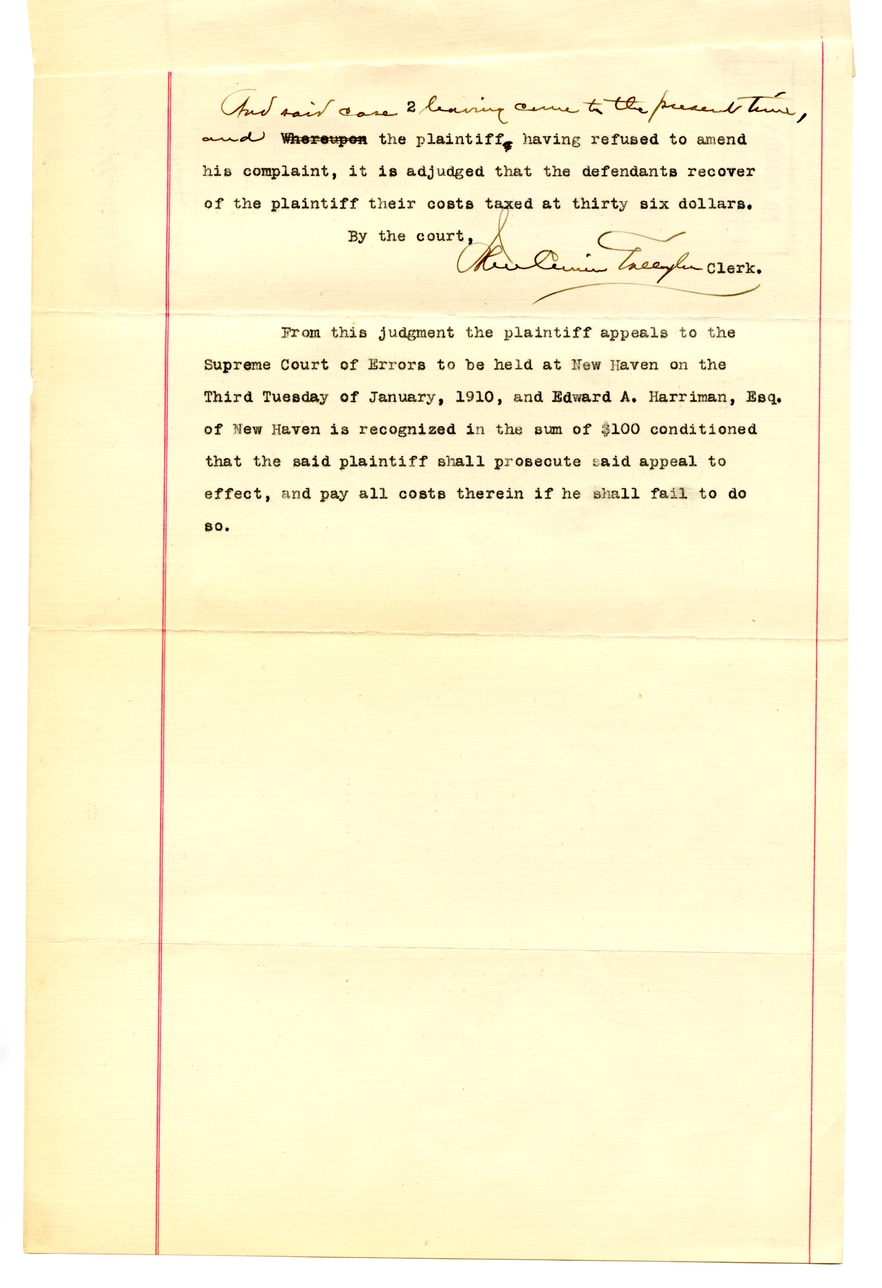 And said case 2 having come to the present time,
and Whereupon the plaintiff, having refused to amend
his complaint, it is adjudged that the defendants recover
of the plaintiff their costs taxed at thirty six dollars.
By the court,
Clerk.
From this judgment the plaintiff appeals to the
Supreme Court of Errors to be held at New Haven on the
Third Tuesday of January, 1910, and Edward A. Harriman, Esq.
of New Haven is recognized in the sum of $100 conditioned
that the said plaintiff shall prosecute said appeal to
effect, and pay all costs therein if he shall fail to do
so.